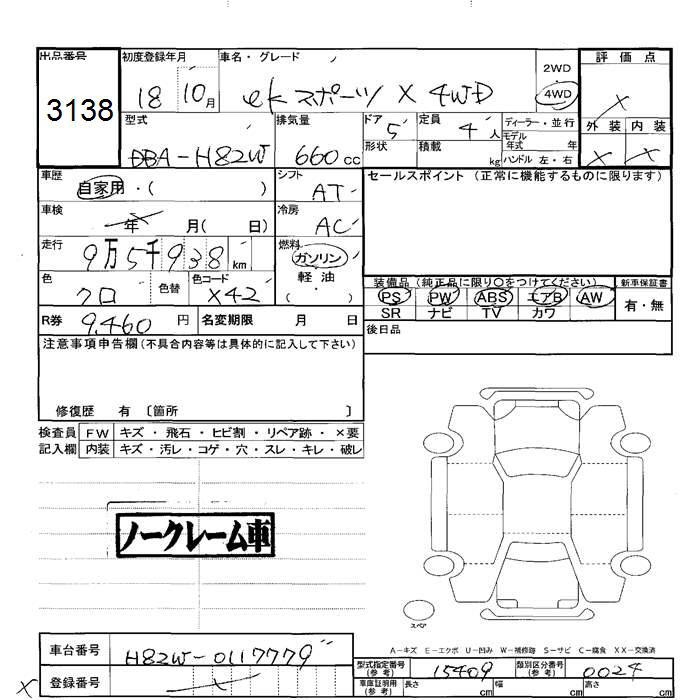 出品番号 初度登録年月 車名・グレード 評価点
3138 18 10月 ekスポーツ X 4WD 2WD 4WD ×
型式 排気量 ドア 5 定員 4人 ディーラー・並行 外装 内装
DBA-H82W 660cc 形状 積載 kg モデル年式 年 × ×
ハンドル 左・右
車歴 自家用・( ) シフト AT セールスポイント (正常に機能するものに限ります)
車検 年 月( 日) 冷房 AC
走行 9万5千938km 燃料 ガソリン
軽油
( )
色 クロ 色替 色コード X42 装備品 (純正品に限り○をつけてください) 新車保証書
PS PW ABS エアB AW 有・無
SR ナビ TV カワ
R券 9,460円 名変期限 月 日 後日品
注意事項申告欄(不具合内容等は具体的に記入して下さい)
修復歴 有 〔箇所 〕
検査員 FW キズ・飛石・ヒビ割・リペア跡・×要
記入欄 内装 キズ・汚レ・コゲ・穴・スレ・キレ・破レ
ノークレーム車
スペア
A-キズ E-エクボ U-凹み W-補修跡 S-サビ C-腐食 XX-交換済
車台番号 H82W-0117779 型式指定番号(参考) 15409 類別区分番号(参考) 0024
× 登録番号 × 車庫証明用(参考) 長さ cm 幅 cm 高さ cm